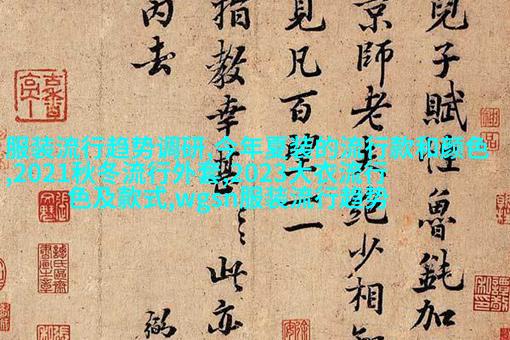 服装流行趋势调研,今年夏装的流行款和颜色
,2021秋冬流行外套,2023大衣流行
色及款式,wgsn服装流行趋势
兒子賦性魯鈍加
京師老夫絕少相知
見凡百望一一
指教幸甚此亦